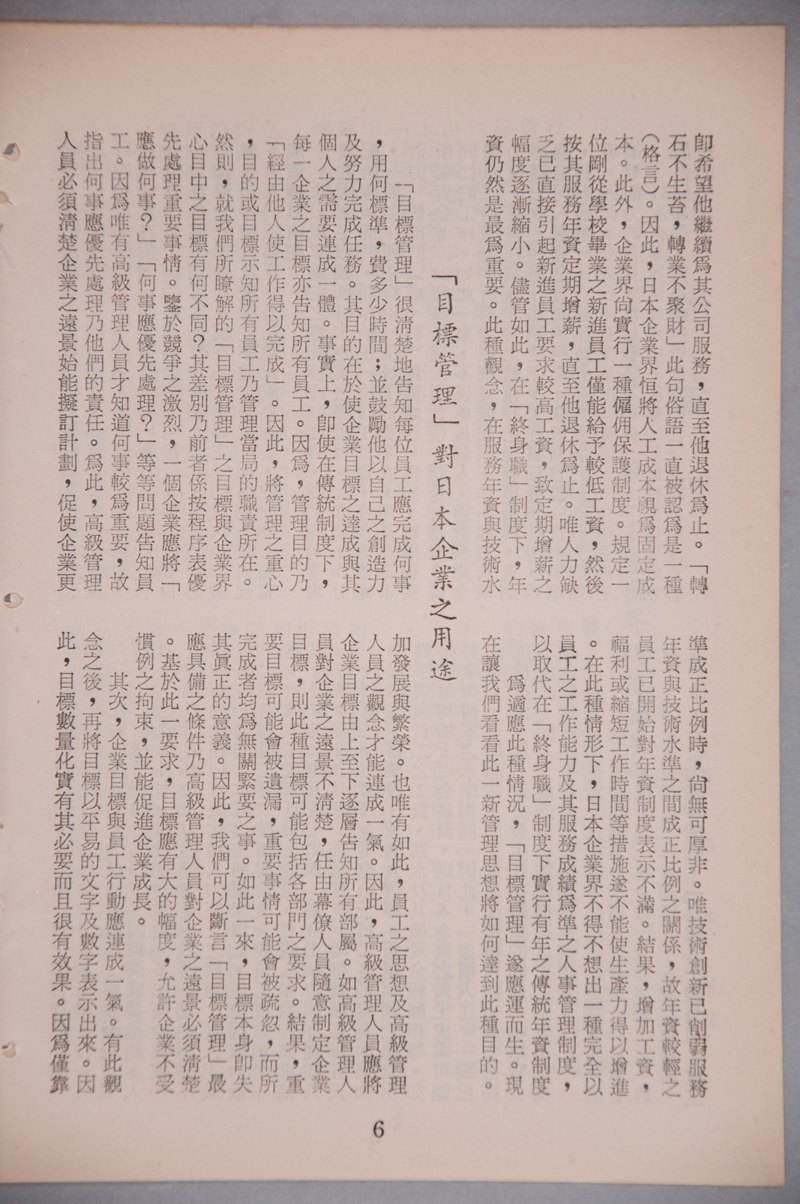 卽希望他繼續爲其公司服務，直至他退休爲止。「轉
石不生苔，轉業不聚財」此句俗語一直被認爲是一種
（格言）。因此，日本企業界恒將人工成本視爲固定成
本。此外，企業界尙實行一種僱佣保護制度。規定一
位剛從學校畢業之新進員工僅能給予較低工資，然後
按其服務年資定期增薪，直至他退休爲止。唯人力缺
乏已直接引起新進員工要求較高工資，致定期增薪之
幅度逐漸縮小。儘管如此，在「終身職」制度下，年
資仍然是最爲重要。此種觀念，在服務年資與技術水
準成正比例時，尙無可厚非。唯技術創新已削弱服務
年資與技術水準之間成正比例之關係，故年資較輕之
員工已開始對年資制度表示不滿。結果，增加工資，
福利或縮短工作時間等措施遂不能使生產力得以增進
。在此種情形下，日本企業界不得不想出一種完全以
員工之工作能力及其服務成績爲準之人事管理制度，
以取代在「終身職」制度下實行有年之傳統年資制度
爲適應此種情況，「目標管理」遂應運而生。現
在讓我們看看此一新管理思想將如何達到此種目的。
「目標管理」對日本企業之用途
「目標管理」很淸楚地告知每位員工應完成何事
，用何標準，費多少時間；並鼓勵他以自己之創造力
及努力完成任務。其目的在於使企業目標之達成與其
個人之需要連成一體。事實上，卽使在傳統制度下，
每一企業之目標亦告知所有員工。因爲，管理目的乃
「經由他人使工作得以完成」。因此，將管理之重心
，目的或目標示知所有員工乃管理當局的職責所在。
然則，就我們所瞭解的「目標管理」之目標與企業界
心目中之目標有何不同？其差別乃前者係按程序表優
先處理重要事情。鑒於競爭之激烈，一個企業應將「
應做何事？」「何事應優先處理？」等等問題告知員
工。因爲唯有高級管理人員才知道何事較爲重要，故
指出何事應優先處理乃他們的責任。爲此，高級管理
人員必須淸楚企業之遠景始能擬訂計劃，促使企業更
加發展與繁榮。也唯有如此，員工之思想及高級管理
人員之觀念才能連成一氣。因此，高級管理人員應將
企業目標由上至下逐層告知所有部屬。如高級管理人
員對企業之遠景不淸楚，任由幕僚人員隨意制定企業
目標，則此種目標可能包括各部門之要求。結果，重
要目標可能會被遺漏，重要事情可能會被疏忽，而所
完成者均爲無關緊要之事。如此一來，目標本身卽失
其眞正的意義。因此，我們可以斷言「目標管理」最
應具備之條件乃高級管理人員對企業之遠景必須淸楚
。基於此一要求，目標應有大的幅度，允許企業不受
慣例之拘束，並能促進企業成長。
其次，企業目標與員工行動應連成一氣。有此觀
念之後，再將目標以平易的文字及數字表示出來。因
此，目標數量化實有其必要而且很有效果。因爲僅靠
6